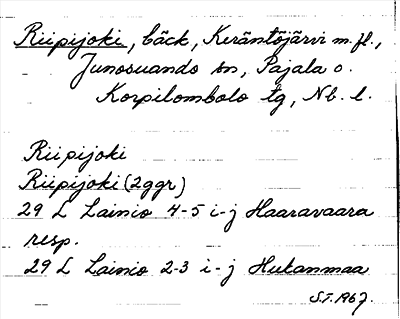 Riipijoki, bäck, Keräntöjärvi m.fl.,
Junosuando sn, Pajala o.
Korpilombolo tg, Nb. l.
Riipijoki
Riipijoki (2ggr)
29 L Lainio 4-5 i-j Haaravaara
resp.
29 L Lainio 2-3 i-j Hutanmaa
S.T. 1967.